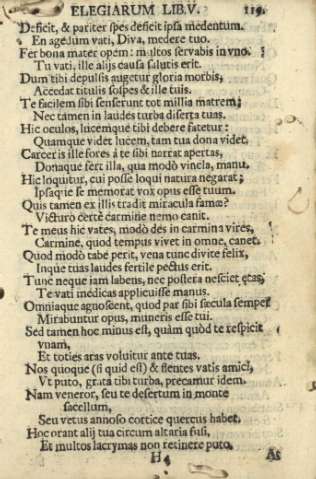 ELEGIARUM LIB.V. 119.
Deficit, & pariter spes deficit ipsa medentum.
En agedum vati, Diva, medere tuo.
Fer bona mater opem: multos servabis in vno.
Tu vati, ille alijs causa salutis erit.
Dum tibi depulsis augetur gloria morbis,
Accedat titulis sospes & ille tuis.
Te facilem sibi senserunt tot millia matrem;
Nec tamen in laudes turba diserta tuas.
Hic oculos, lucemque tibi debere fatetur:
Quamque videt lucem, tam tua dona videt.
Carceris ille fores à te sibi narrat apertas,
Donaque fert illa, qua modò vincla, manu.
Hic loquitur, cui posse loqui natura negarat;
Ipsaque se memorat vox opus esse tuum.
Quis tamen ex illis tradit miracula famæ?
Victuro certè carmine nemo canit.
Te meus hic vates, modò des in carmina vires,
Carmine, quod tempus vivet in omne, canet.
Quod modò tabe perit, vena tunc divite felix,
Inque tuas laudes fertile pectus erit.
Tunc neque iam labens, nec postera nesciet ætas,
Te vati medicas applicuisse manus.
Omniaque agnoscent, quod par sibi sæcula semper
Mirabuntur opus, muneris esse tui.
Sed tamen hoc minus est, quàm quòd te respicit
vnam,
Et toties aras voluitur ante tuas.
Nos quoque (si quid est) & flentes vatis amici,
Vt puto, grata tibi turba, precamur idem.
Nam veneror, seu te desertum in monte
sacellum,
Seu vetus annoso cortice quercus habet.
Hoc orant alij tua circum altaria fusi,
Et multos lacrymas non retinere puto.
H4 As